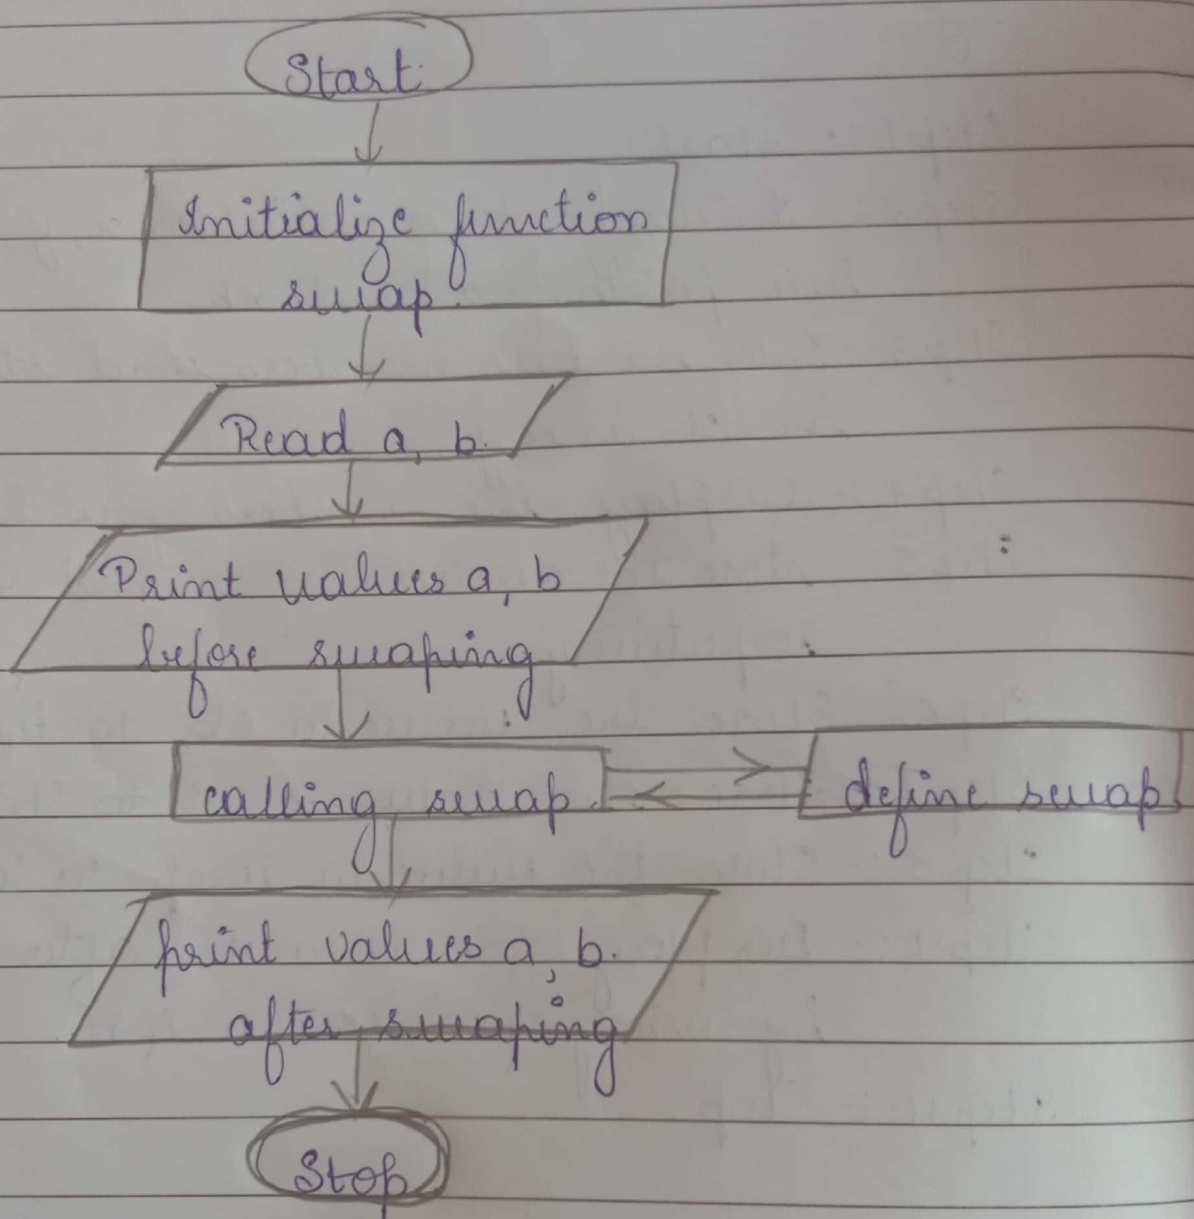 Start.
Initialize function
swap.
Read a, b.
Print values a, b
before swaping
calling swap.
define swap
print values a, b.
after swaping
Stop